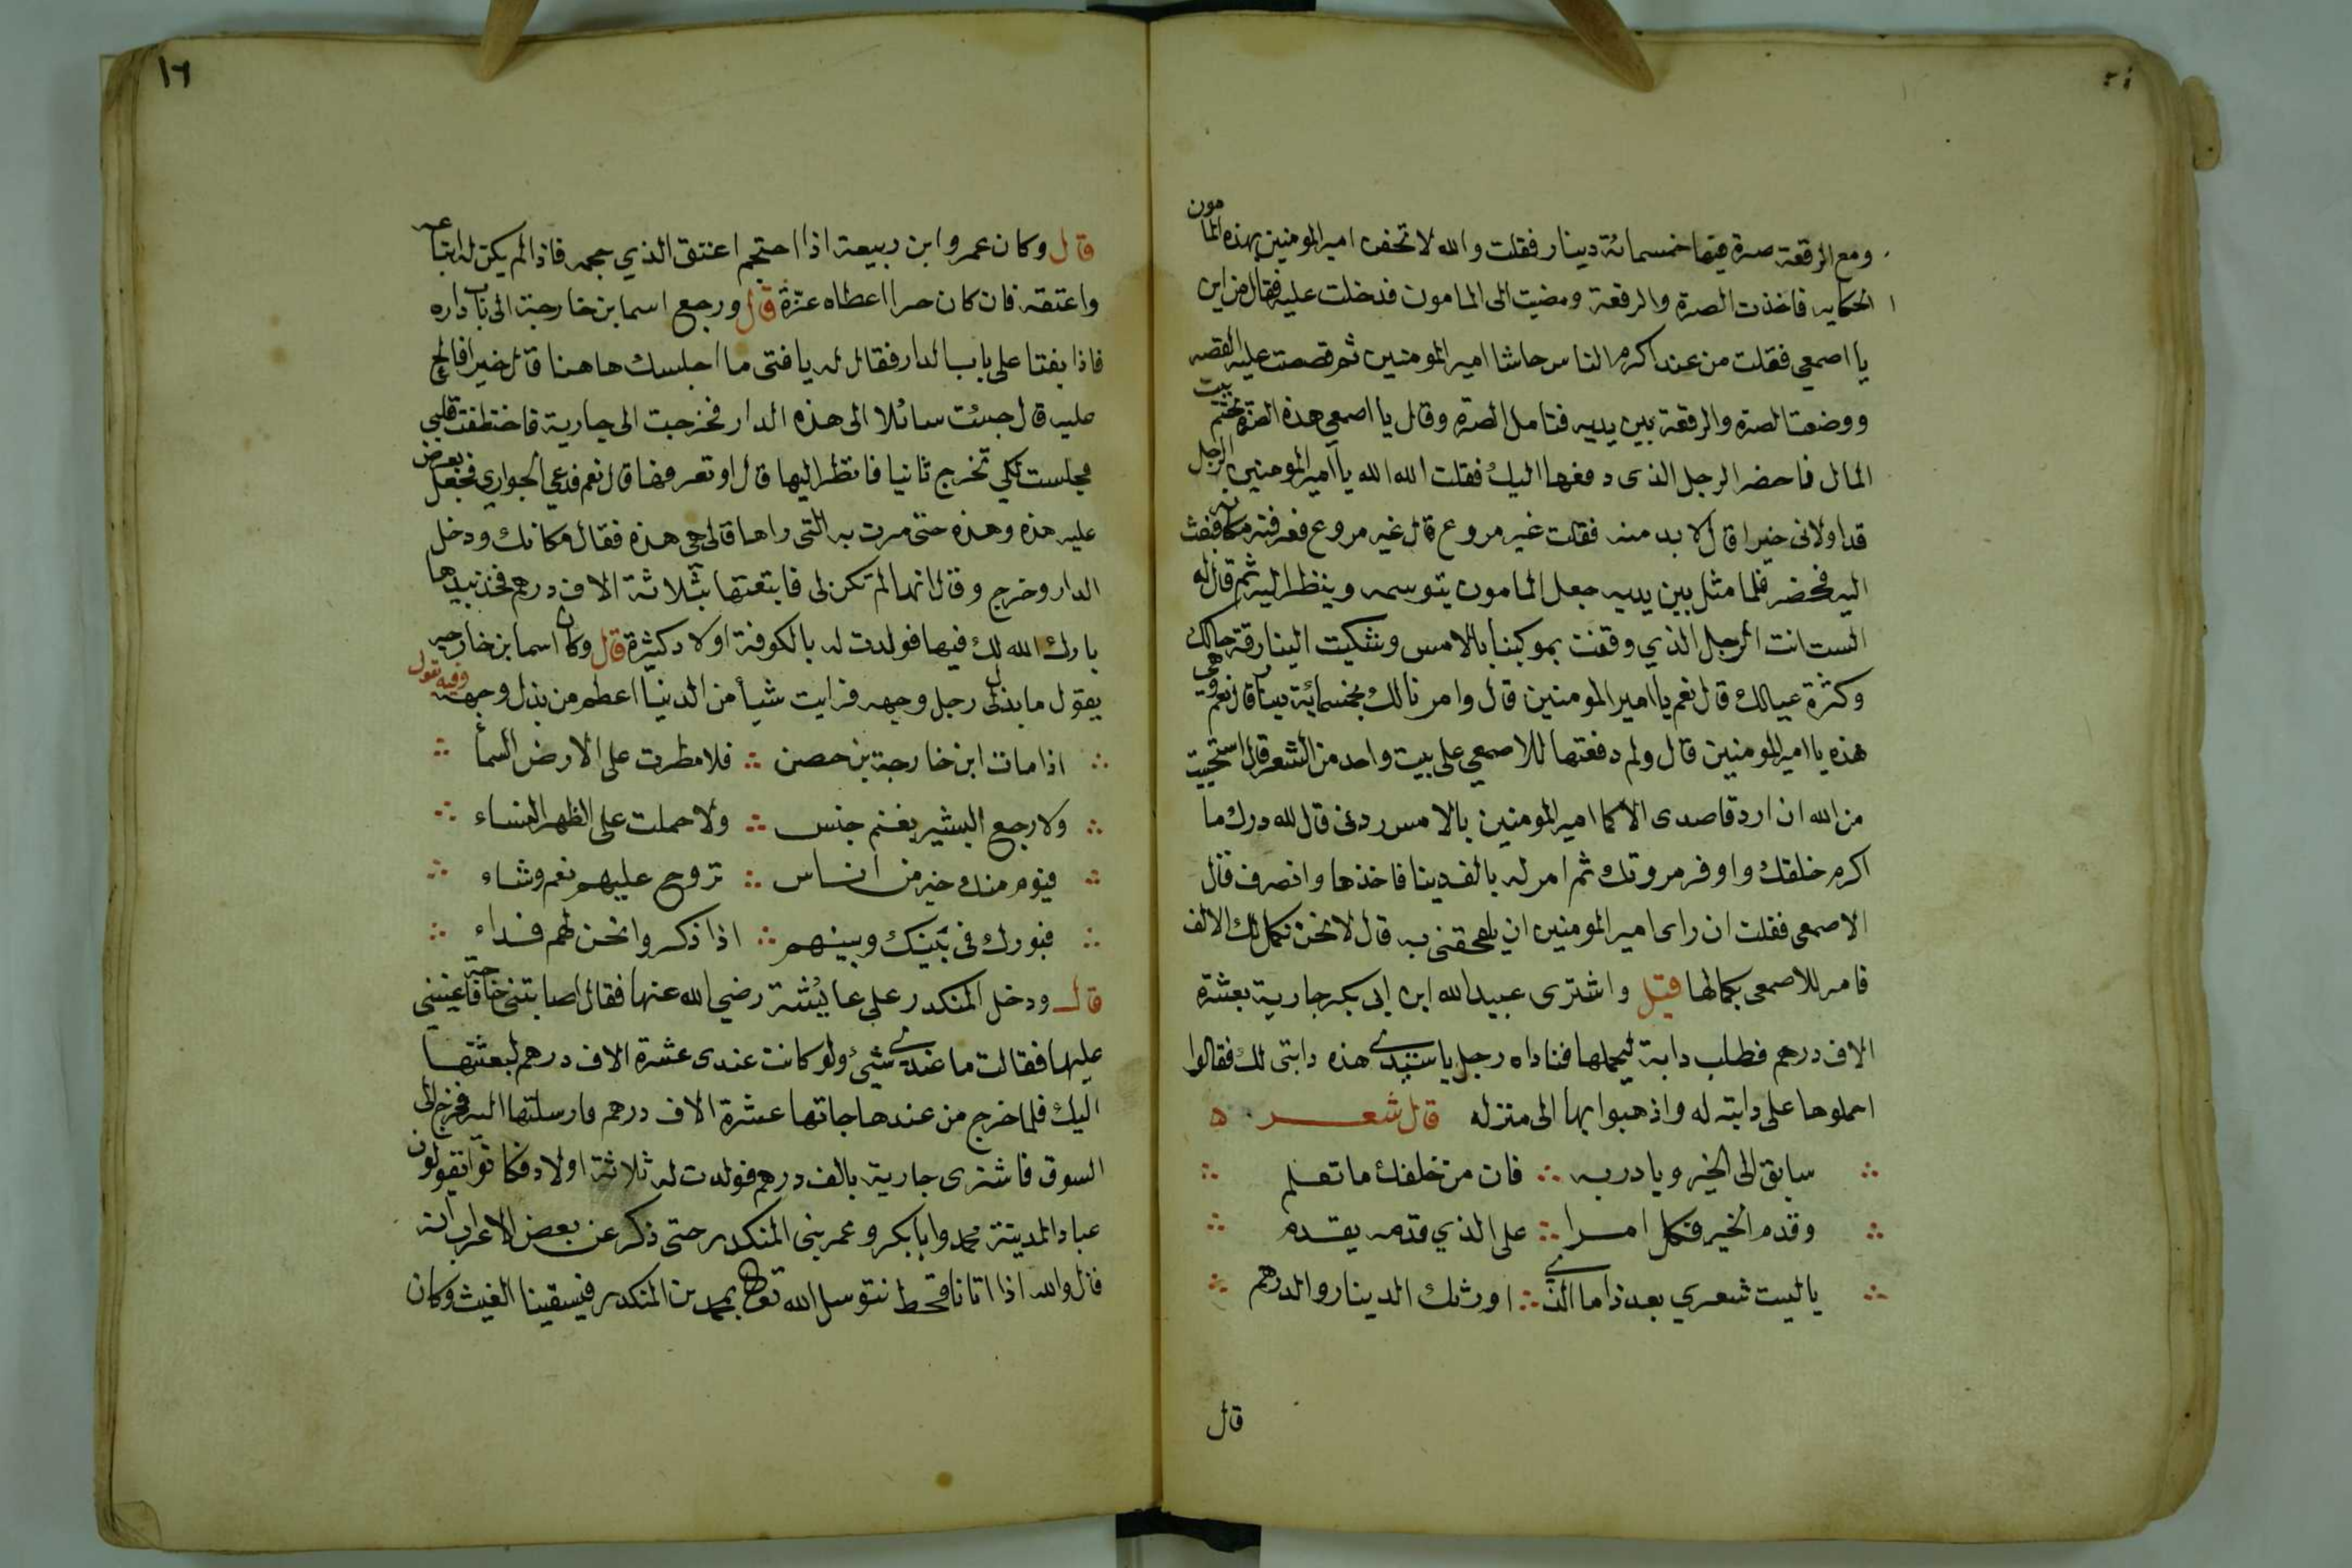 ومع الرقعة صرة فيها خمسمائة دينار فقلت والله لا تحفن امير المومنين بهذه المامون
الحكايه فاخذت الصرة والرقعة ومضيت الى المامون فدخلت عليه فقال من اين
يا اصمعي فقلت من عند اكرم الناس حاشا امير المومنين ثم قصصت عليه القصه
ووضعت الصرة والرقعة بين يديه فتامل الصرة وقال يا اصمعي هذه الصرة بختم بيت
المال فاحضر الرجل الذى دفعها اليك فقلت الله الله يا امير المومنين الرجل
قد اولانى خيرا قال لابد منه فقلت غير مروع قال غير مروع فعرفته مكانه فبعث
اليه فحضر فلما مثل بين يديه جعل المامون يتوسمه وينظر اليه ثم قال له
الست انت الرجل الذي وقفت بموكبنا بالامس وشكيت الينا رقة حالك
وكثرة عيالك قال نعم يا امير المومنين قال وامرنا لك بخمسمائة دينار قال نعم وهى
هذه يا امير المومنين قال ولم دفعتها للاصمعي على بيت واحد من الشعر قال استحييت
من الله ان ارد قاصدى الا كما امير المومنين بالامس ردنى قال لله درك ما
اكرم خلقك واوفر مروتك ثم امر له بالف دينا فاخذها وانصرف فقال
الاصمعى فقلت ان راى امير المومنين ان يلحقنى به قال لا نحن نكمل لك الالف
فامر للاصمعى بكمالها قيل واشترى عبيد الله ابن ابى بكر جارية بعشرة
الاف درهم فطلب دابة ليحملها فناداه رجل يا سيدي هذه دابتى لك فقالوا
احملوها على دابته له واذهبوا بها الى منزله قال شعر
سابق الى الخير وبادر به فان من خلفك ما تعلم
وقدم الخير فكل امرا على الذي قدمه يقدم
يا ليت شعري بعد ذاما الذي اورثك الدينار والدرهم
قال
١٦
قال وكان عمرو ابن ربيعة اذا احتجم اعتق الذي حجمه فاذا لم يكن له ابتاعه
واعتقه فان كان حرا اعطاه عزة قال ورجع اسما بن خارجة الى باب داره
فاذا بفتا على باب الدار فقال له يا فتى ما اجلسك هاهنا قال خيرا فالح
عليه قال جئت سائلا الى هذه الدار فخرجت الى جارية فاختطفت قلبي
فجلست لكي تخرج ثانيا فانظر اليها قال اوتعرفها قال نعم فدعى الجواري فجعل يعرض
عليه هذه وهذه حتى مرت به التى راها قال هي هذه فقال مكانك ودخل
الدار وخرج وقال انها لم تكن لى فابتعتها بثلاثة الاف درهم فخذ بيدها
بارك الله لك فيها فولدت له بالكوفة اولاد كثيرة قال وكان اسما بن خارجه
يقول ما بذل لى رجل وجهه فرايت شيأ من الدنيا اعظم من بذل وجهه وفيه تقول
اذا مات ابن خارجة بن حصن فلا مطرت على الارض السمأ
ولا رجع البشير بغنم جنس ولا حملت على الظهر النساء
فيوم منك خير من اناس تروح عليهم نعم وشاء
فبورك فى بنيك وبينهم اذا ذكروا نحن لهم فداء
قال ودخل المنكدر على عايئشة رضي الله عنها فقال اصابتنى حاجة فاعينيني
عليها فقالت ما عندي شيئ ولو كانت عندى عشرة الاف درهم لبعثتها
اليك فلما خرج من عندها جاتها عشرة الاف درهم فارسلتها اليه فخرج الى
السوق فاشترى جارية بالف درهم فولدت له ثلاثة اولاد فكانوا يقولون
عباد المدينة محمد وابا بكر وعمر بنى المنكدر حتى ذكر عن بعض الاعراب انه
قال والله اذا اتانا قحط نتوسل الله تعالى بمحمد بن المنكدر فيسقينا الغيث وكان